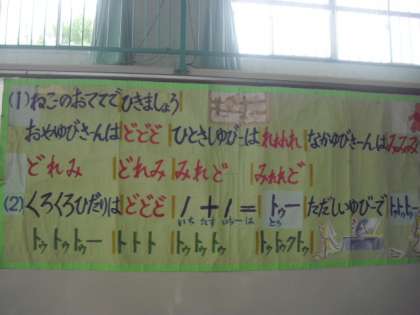 (1)ねこのおててでひきましょう
おやゆびさーんは どどど ひとさしゆびーは れれれ なかゆびさーんは みみみ
どれみ どれみ みれど みれれど
(2)くろくろひだりは どどど 1+1= トゥー ただしいゆびーで トゥトゥトゥー
いち たす いちーは
トゥトゥトゥー トトト トゥトゥトゥ トゥトゥクトゥ